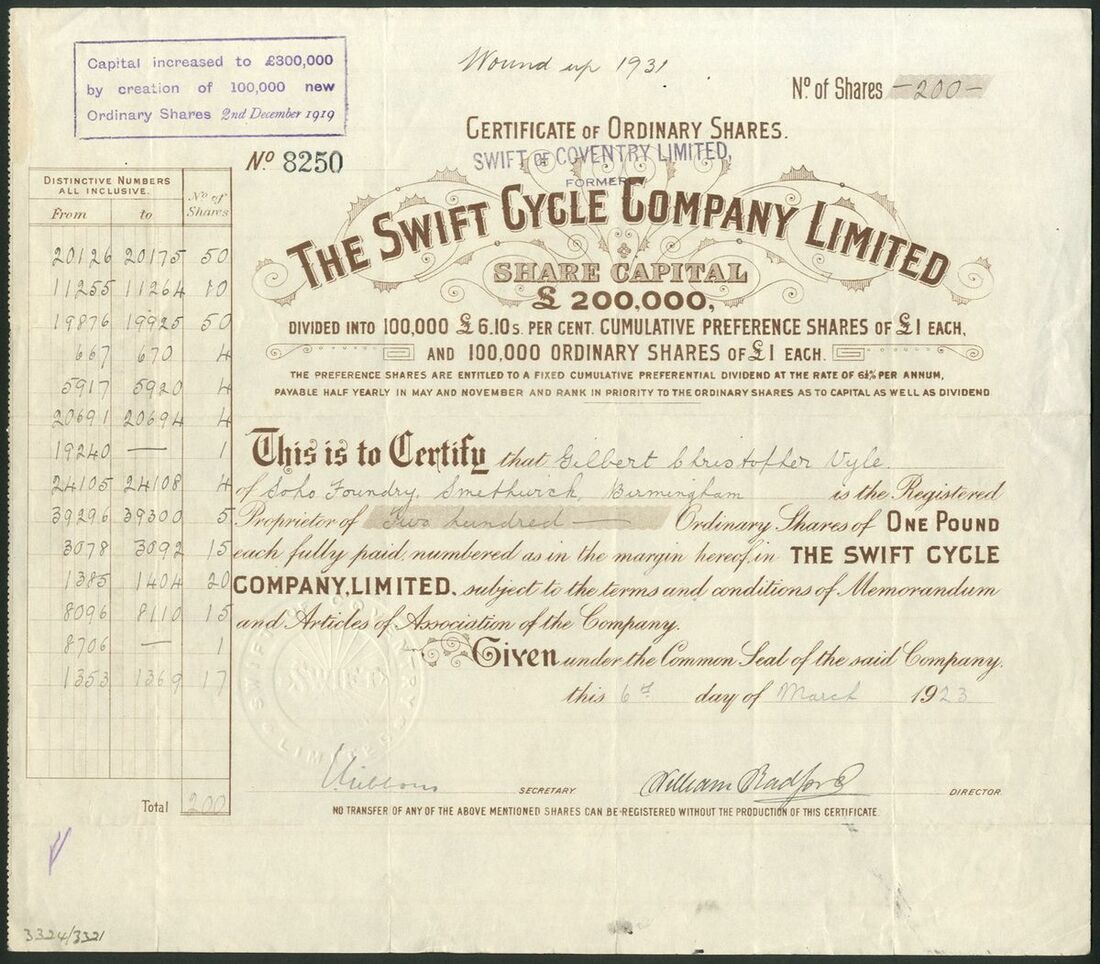 Capital increased to £300,000
by creation of 100,000 new
Ordinary Shares 2nd December 1919
Wound up 1931
No of Shares -200-
CERTIFICATE OF ORDINARY SHARES.
No 8250
SWIFT OF COVENTRY LIMITED,
FORMERLY
THE SWIFT CYCLE COMPANY LIMITED
SHARE CAPITAL
£ 200,000,
DIVIDED INTO 100,000 £6.10s. PER CENT. CUMULATIVE PREFERENCE SHARES OF £1 EACH,
AND 100,000 ORDINARY SHARES OF £1 EACH.
THE PREFERENCE SHARES ARE ENTITLED TO A FIXED CUMULATIVE PREFERENTIAL DIVIDEND AT THE RATE OF 6½% PER ANNUM,
PAYABLE HALF YEARLY IN MAY AND NOVEMBER AND RANK IN PRIORITY TO THE ORDINARY SHARES AS TO CAPITAL AS WELL AS DIVIDEND
DISTINCTIVE NUMBERS
ALL INCLUSIVE.
From to No of Shares
20126 20175 50
11255 11264 10
19876 19925 50
667 670 4
5917 5920 4
20691 20694 4
19240 — 1
24105 24108 4
39296 39300 5
3078 3092 15
1385 1404 20
8096 8110 15
8706 — 1
1353 1369 17
Total 200
This is to Certify that Gilbert Christopher Vyle
of Soho Foundry, Smethwick, Birmingham is the Registered
Proprietor of Two hundred — Ordinary Shares of ONE POUND
each fully paid, numbered as in the margin hereof, in THE SWIFT CYCLE
COMPANY, LIMITED, subject to the terms and conditions of Memorandum
and Articles of Association of the Company.
Given under the Common Seal of the said Company,
this 6th day of March 1923
SWIFT OF COVENTRY LIMITED
SWIFT
SECRETARY
William Radford DIRECTOR
NO TRANSFER OF ANY OF THE ABOVE MENTIONED SHARES CAN BE REGISTERED WITHOUT THE PRODUCTION OF THIS CERTIFICATE.
3324/3321